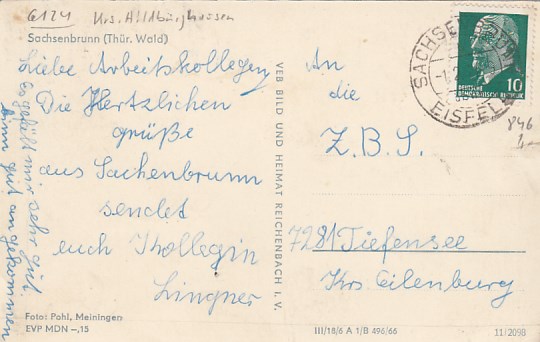 6124 Krs. Hildburghausen
Sachsenbrunn (Thür. Wald)
Liebe Arbeitskollegen
Die Hertzlichen
grüße
aus Sachenbrunn
sendet
euch Kollegin
Lingner
Es gefällt mir sehr gut.
binn gut angekommen
Foto: Pohl, Meiningen
EVP MDN –,15
VEB BILD UND HEIMAT REICHENBACH I. V.
An
die
Z.B.S.
7281 Tiefensee
Krs. Eilenburg
III/18/6 A 1/B 496/66
11/2098
EISFELD
10
DEUTSCHE
DEMOKRATISCHE REPUBLIK
846
1,–